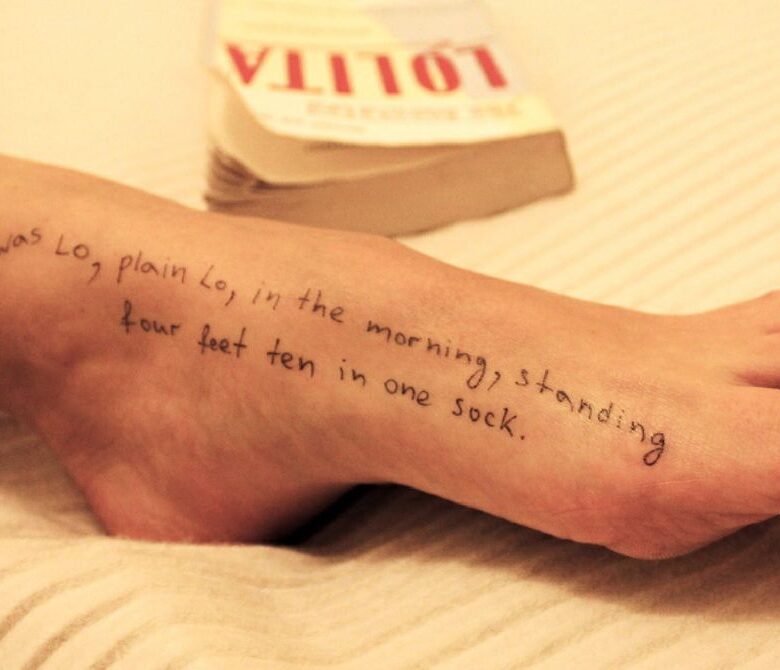 LOLITA
was Lo, plain Lo, in the morning, standing
four feet ten in one sock.